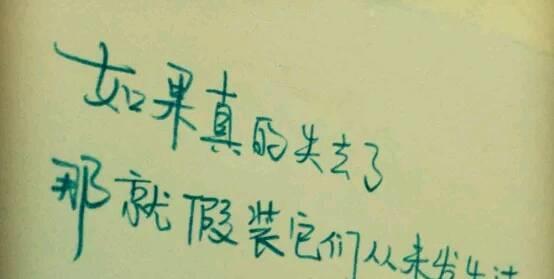 如果真的失去了
那就假装它们从未发生过